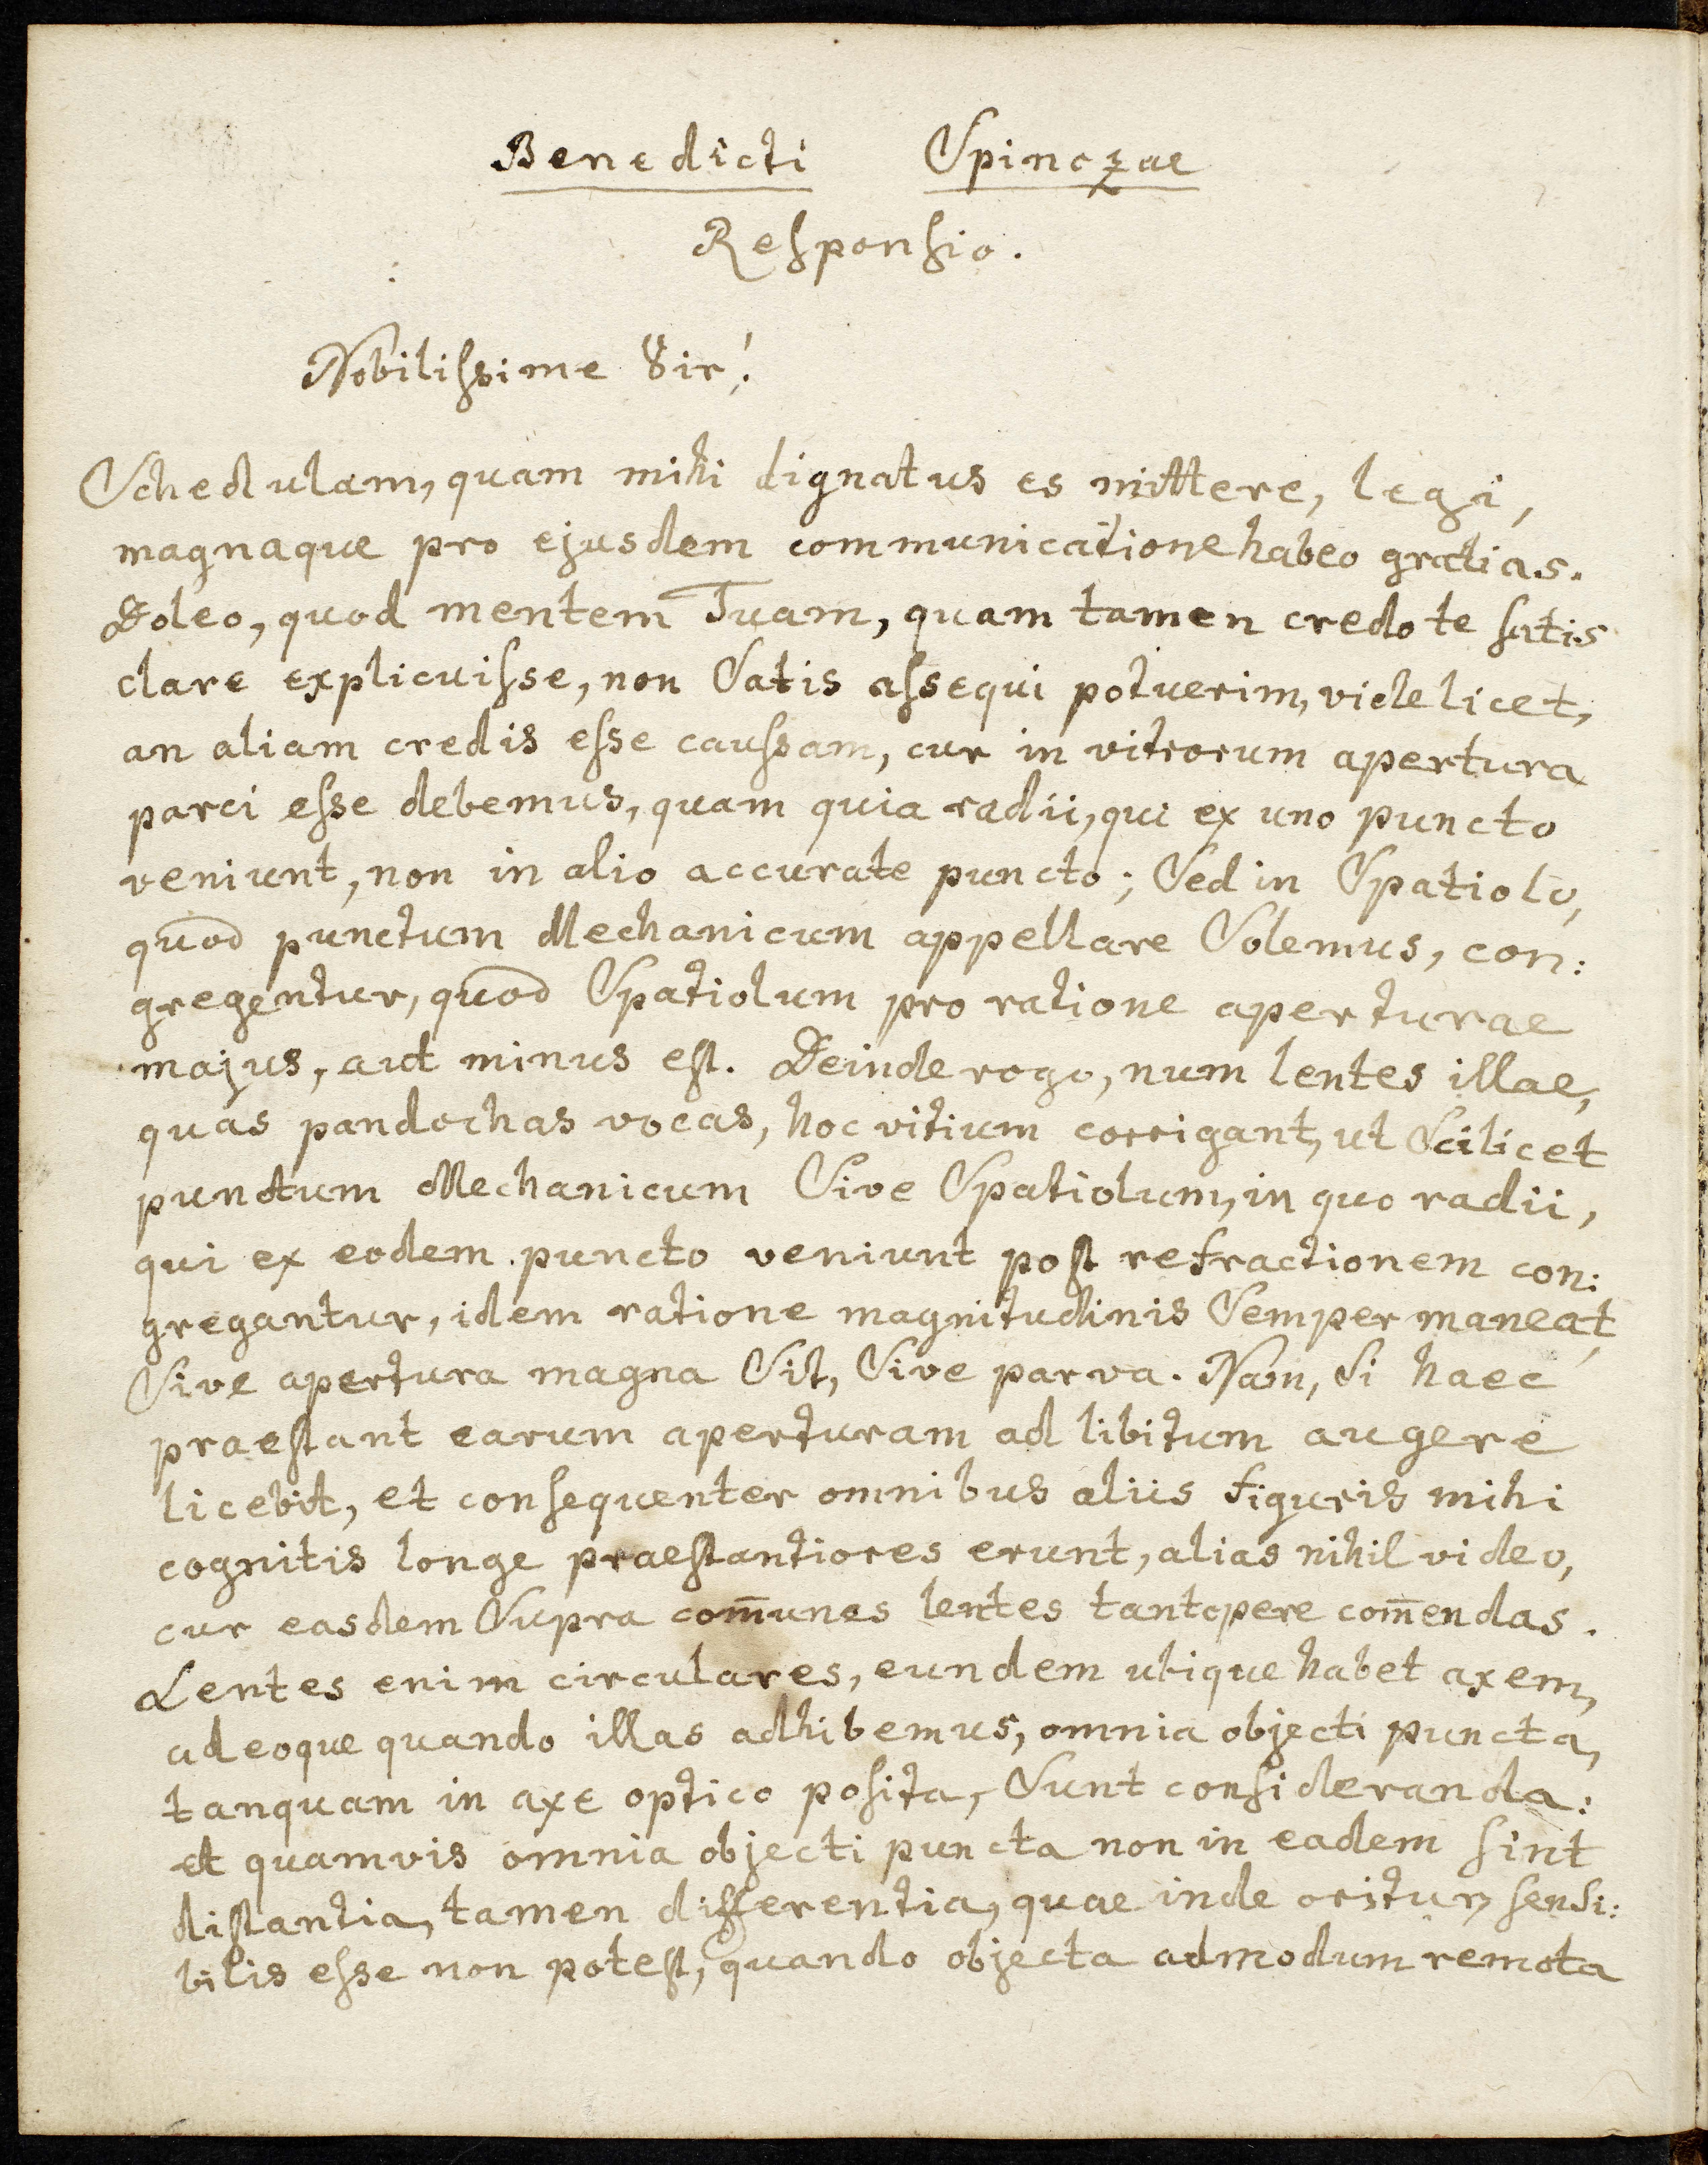 Benedicti Spinozae
Responsio.
Nobilissime Vir!
Schedulam, quam mihi dignatus es mittere, legi,
magnaque pro ejusdem communicatione habeo gratias.
Doleo, quod mentem Tuam, quam tamen credo te satis
clare explicuisse, non Satis assequi potuerim, videlicet,
an aliam credis esse caussam, cur in vitrorum apertura
parci esse debemus, quam quia radii, qui ex uno puncto
veniunt, non in alio accurate puncto; Sed in Spatiolo,
quod punctum Mechanicum appellare Solemus, con:
gregentur, quod Spatiolum pro ratione aperturae
majus, aut minus est. Deinde rogo, num lentes illae,
quas pandochas vocas, hoc vitium corrigant, ut Scilicet
punctum Mechanicum Sive Spatiolum, in quo radii,
qui ex eodem puncto veniunt post refractionem con:
gregantur, idem ratione magnitudinis Semper maneat,
Sive apertura magna Sit, Sive parva. Nam, Si haec
praestant earum aperturam ad libitum augere
licebit, et consequenter omnibus aliis figuris mihi
cognitis longe praestantiores erunt, alias nihil video,
cur easdem Supra com̄unes lentes tantopere com̄endas.
Lentes enim circulares, eundem ubique habet axem,
adeoque quando illas adhibemus, omnia objecti puncta,
tanquam in axe optico posita, Sunt consideranda:
et quamvis omnia objecti puncta non in eadem sint
distantia, tamen differentia, quae inde oritur, sensi:
bilis esse non potest, quando objecta admodum remota